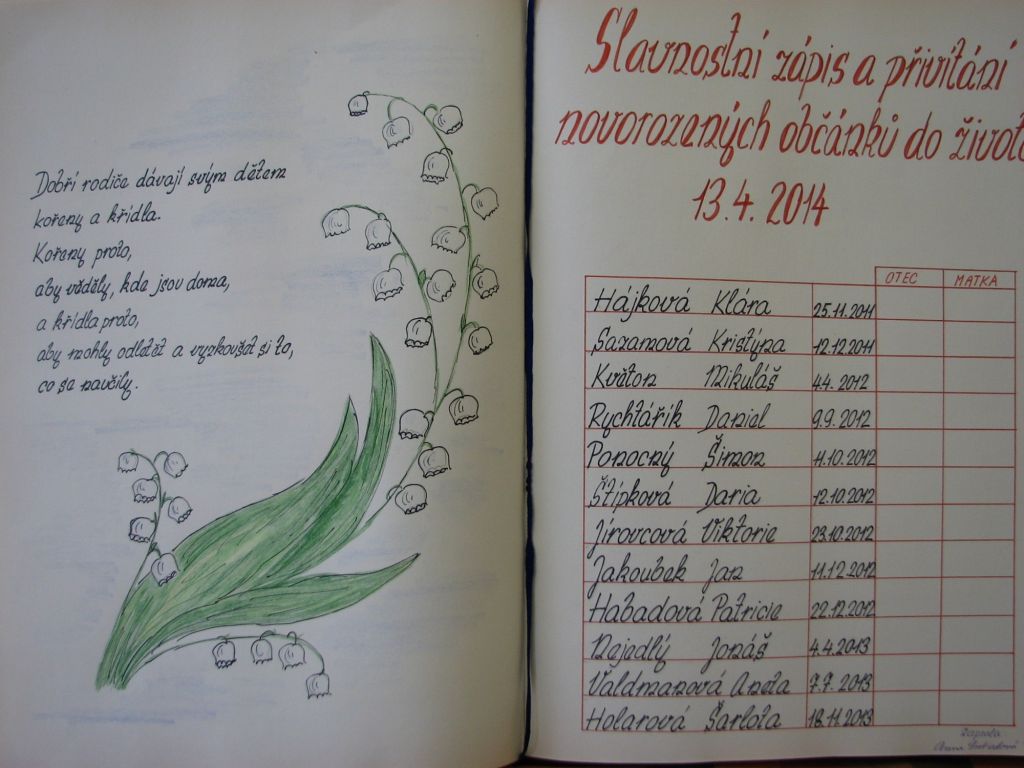 Dobří rodiče dávají svým dětem
kořeny a křídla.
Kořeny proto,
aby věděly, kde jsou doma,
a křídla proto,
aby mohly odletět a vyzkoušet si to,
co se naučily.
Slavnostní zápis a přivítání
novorozených občánků do života
13.4.2014
OTEC MATKA
Hájková Klára 25.11.2011
Saxamová Kristýna 12.12.2011
Květon Mikuláš 4.4. 2012
Rychtářík Daniel 9.9. 2012
Ponocný Šimon 11.10.2012
Štípková Daria 12.10.2012
Jírovcová Viktorie 23.10.2012
Jakoubek Jan 11.12.2012
Habadová Patricie 22.12.2012
Nejedlý Jonáš 4.4.2013
Valdmanová Aneta 7.7. 2013
Holarová Šarlota 18.11.2013
Zapsala